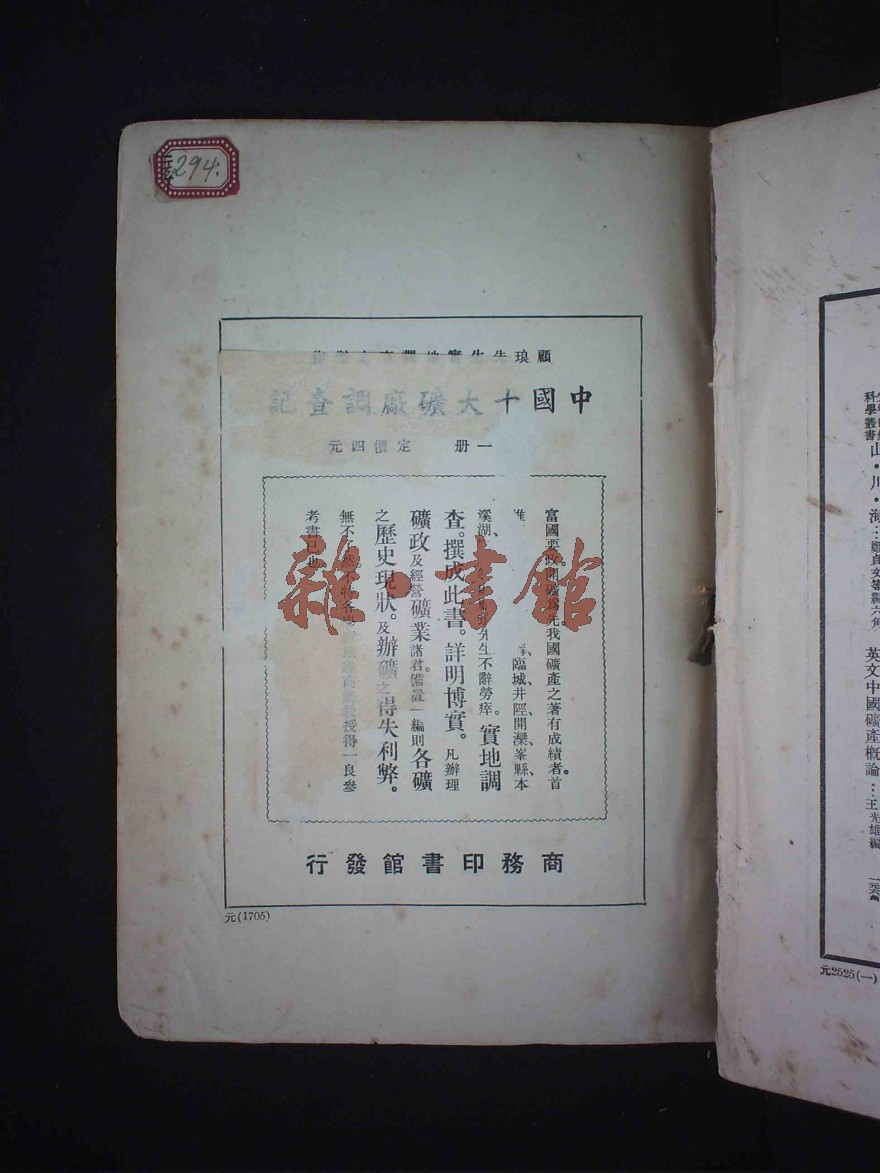 294.
顧琅先生實地
中國十大礦廠調查記
一册 定價四元
富國要政開礦爲先我國礦產之著有成績者。首
臨城井陘開灤峯縣、本
溪湖、先生不辭勞瘁。實地調
查。撰成此書。詳明博實。凡辦理
礦政及經營礦業諸君。備置一編則各礦
之歷史現狀。及辦礦之得失利弊。
無不了然。教授得一良參
考書已也
商務印書館發行
元(1705)
雜·書館
科學叢書
山·川·海…鄭貞文等編 六角
英文中國礦產概論…王光雄編
元2525(一)